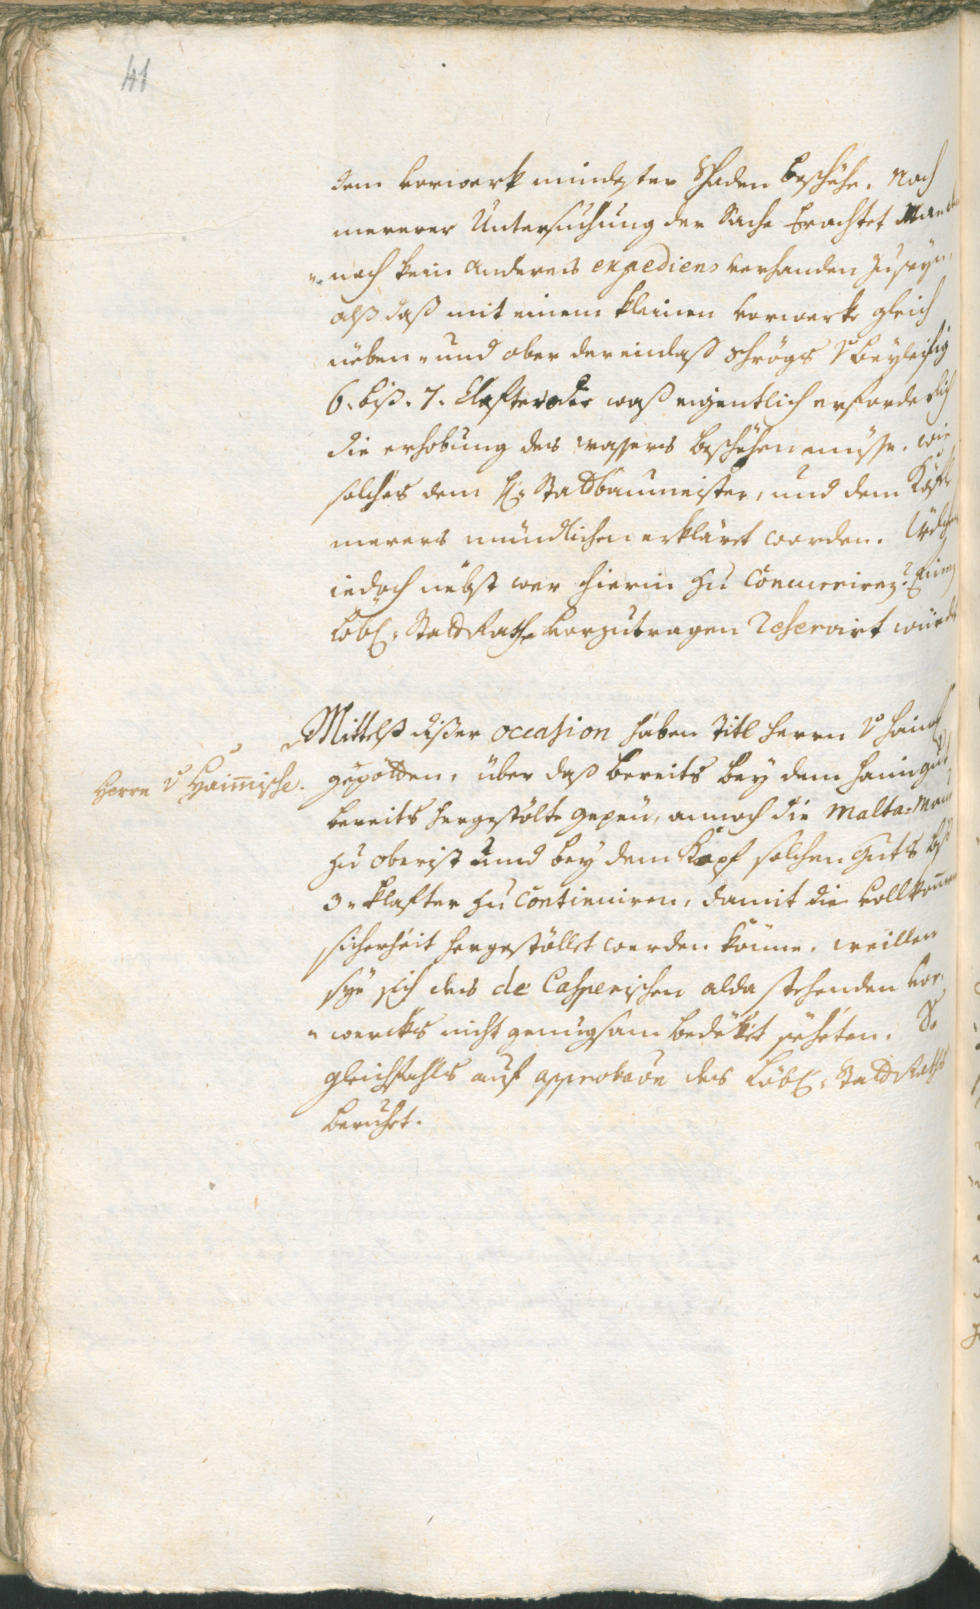 41
dem vorwerk mindester Schaden beschehe. Nach
mererer Untersuchung der Sache erachtet Man
nach kein anderes expediens verhanden zuseyn,
alß daß mit einem kleinen vorwerk gleich
neben- und ober der einlaß schrögs beyleifig
6. biß. 7. Clafter oder waß eigentlich erforderlich
die erhobung des wassers beschehen müsse. wie
solches dem H: Stattbaumeister, und dem
merers mündlichen erkläret worden.
iedoch nebst wer hierin zu Concurriren?
Löbl: StattRath vorzutragen reservirt würdt
Mittelß dißer occasion haben Titl Herrn v
Herrn v Haimische.
gepotten, über daß bereits bey dem
bereits hergestölte gepeü, annoch die Malta-Maur
zu oberist und bey dem Kopf solchen Guts
3 klafter zu Continuiren, damit die vollkomne
sicherheit hergestöllet werden könne. weillen
sye sich des de Casperischen alda stehenden vor-
wercks nicht genugsam bedekt seheten. So
gleichfahls auf approbaon des Löbl: StattRaths
beruhet.